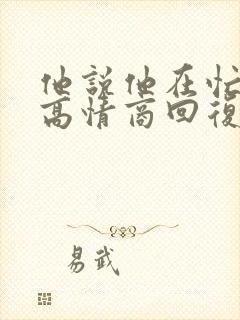 他說他在忙
高情商回復
易武